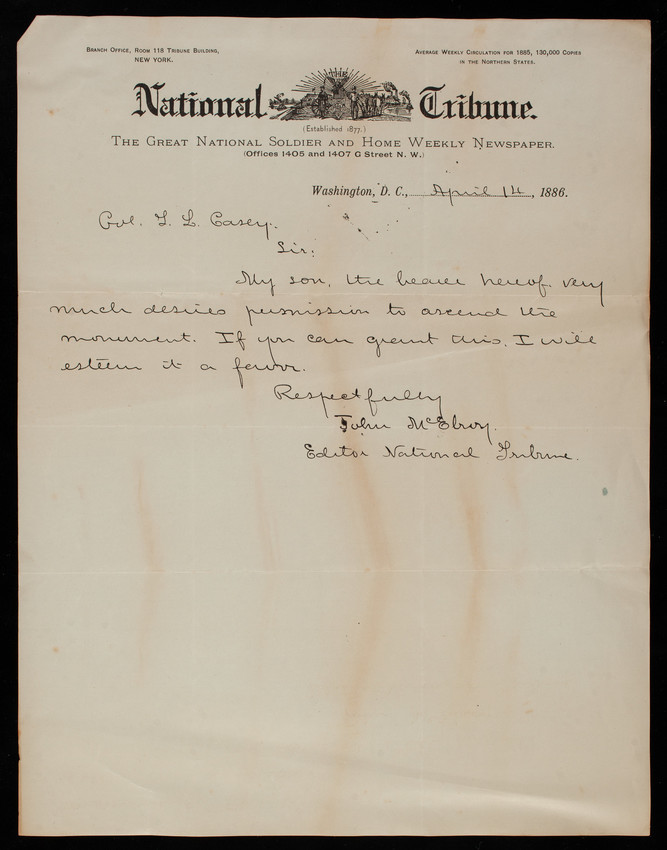 Branch Office, Room 118 Tribune Building,
NEW YORK.
Average Weekly Circulation for 1885, 130,000 Copies
in the Northern States.
THE
National Tribune.
(Established 1877.)
The Great National Soldier and Home Weekly Newspaper.
(Offices 1405 and 1407 G Street N. W.)
Washington, D. C., April 14, 1886.
Col. T. L. Casey.
Sir:
My son, the bearer hereof, very
much desires permission to ascend the
monument. If you can grant this, I will
esteem it a favor.
Respectfully
John McElroy.
Editor National Tribune.